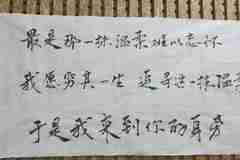 最是那一抹温柔难以忘怀
我愿穷其一生 追寻这一抹温
于是我来到你的身旁